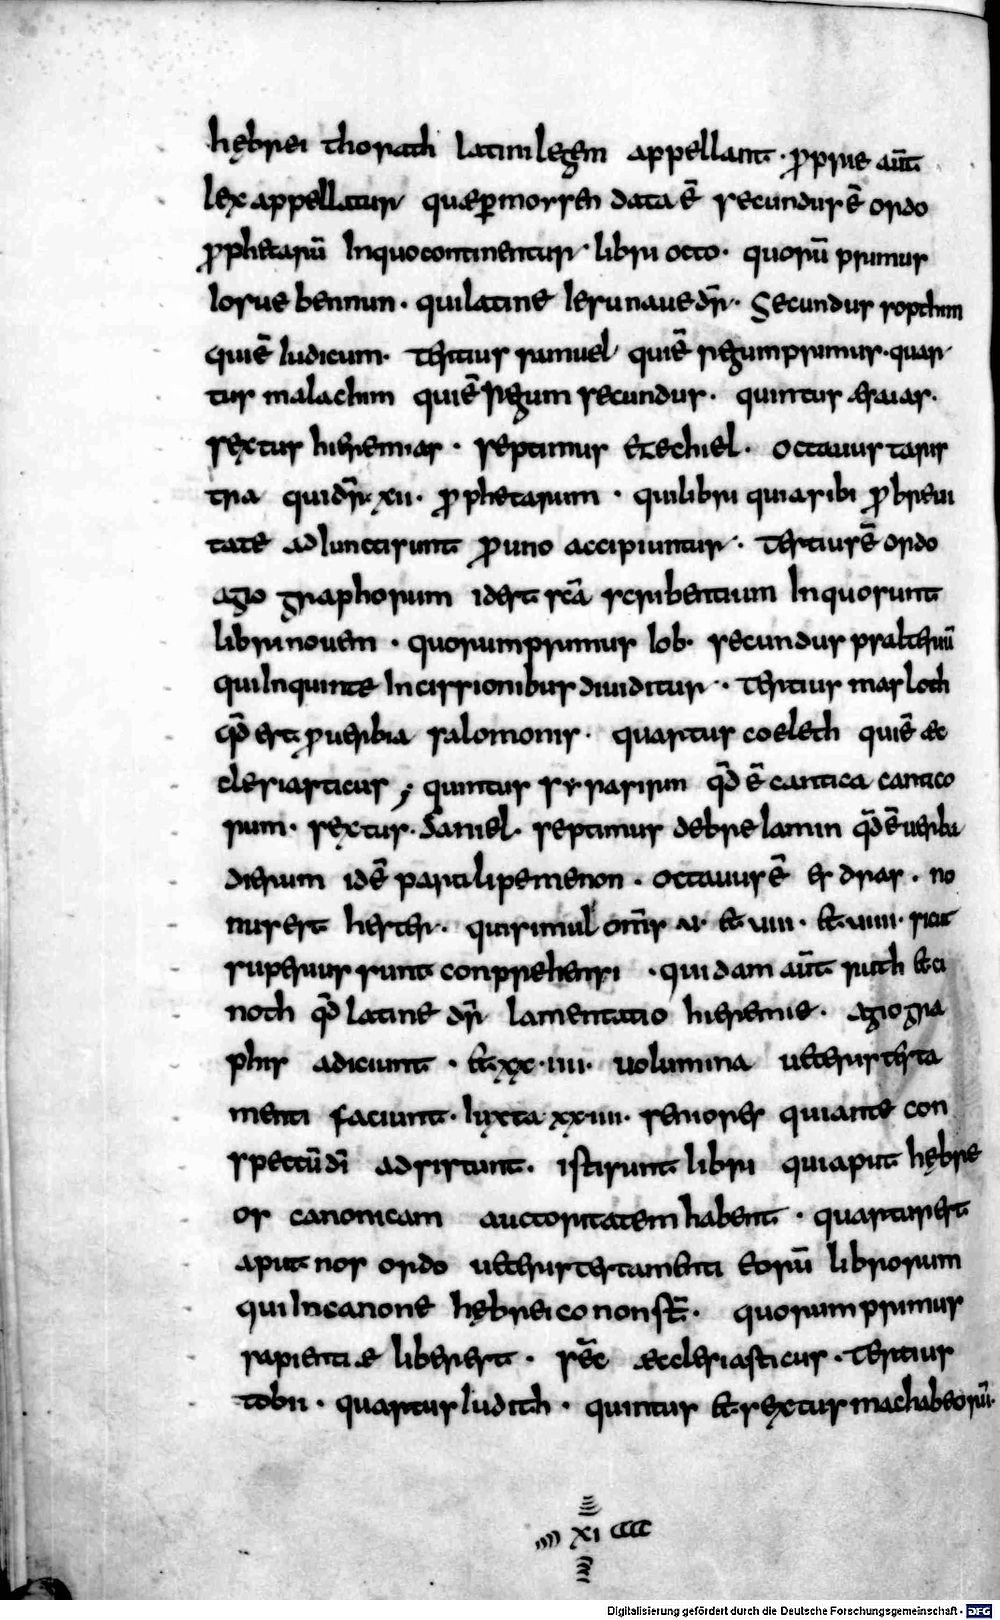 hębrei thorath latini legem appellant · p̄prie aūt
lex appellatur quę ꝑ mosen data ē̄ secundus ē̄ ordo
p̄phetarū In quo continentur libri octo · quorū primus
Iosue bennun · qui latine Iesu naue dr̄ · Secundus sopthim
qui ē̄ Iudicum · Tertius samuel qui ē̄ regum primus · quar
tus malachim qui ē̄ regum secundus · quintus æsaias ·
sextus hieremias · septimus ezechiel · octauus tasris
tra qui dr̄ · xii · p̄phetarum · qui libri quia sibi p̄ breui
tate adiuncti sunt p̄ uno accipiuntur · Tertius ē̄ ordo
agio graphorum idest sc̄a scribentium In quo sunt
libri nouem · quorum primus Iob · secundus psalteriū
qui In quinte Incissionibus diuiditur · Tertius masloth
qd̄ est p̄uerbia salomonis · quartus coeleth qui ē̄ æc
clesiasticus ; quintus syrasirim qd̄ ē̄ cantica cantico
rum · sextus · daniel · septimus debreiamin qd̄ ē̄ uerba
dierum id ē̄ paralipemenon · octauus ē̄ esdras · no
nus est hester · qui simul om̄s · u · & uiii · & uiiii · sicut
superius sunt conprehensi · quidam aūt ruth & ci
noth qd̄ latine dr̄ lamentatio hieremie · agiogra
phis adiciunt · & xx · iiii · uolumina ueteris testa
menti faciunt · Iuxta xx · iiii · seniores qui ante con
spectū dī adsistunt · isti sunt libri qui aput hębre
os canonicam auctoritatem habent · quartus est
aput nos ordo ueteris testamenti eorū librorum
qui In canone hębreico non st̄ · quorum primus
sapientiæ liber est · sec̄ æcclesiasticus · Tertius
tobii · quartus Iudith · quintus & sextus machabeorū ·
xi
Digitalisierung gefördert durch die Deutsche Forschungsgemeinschaft - DFG